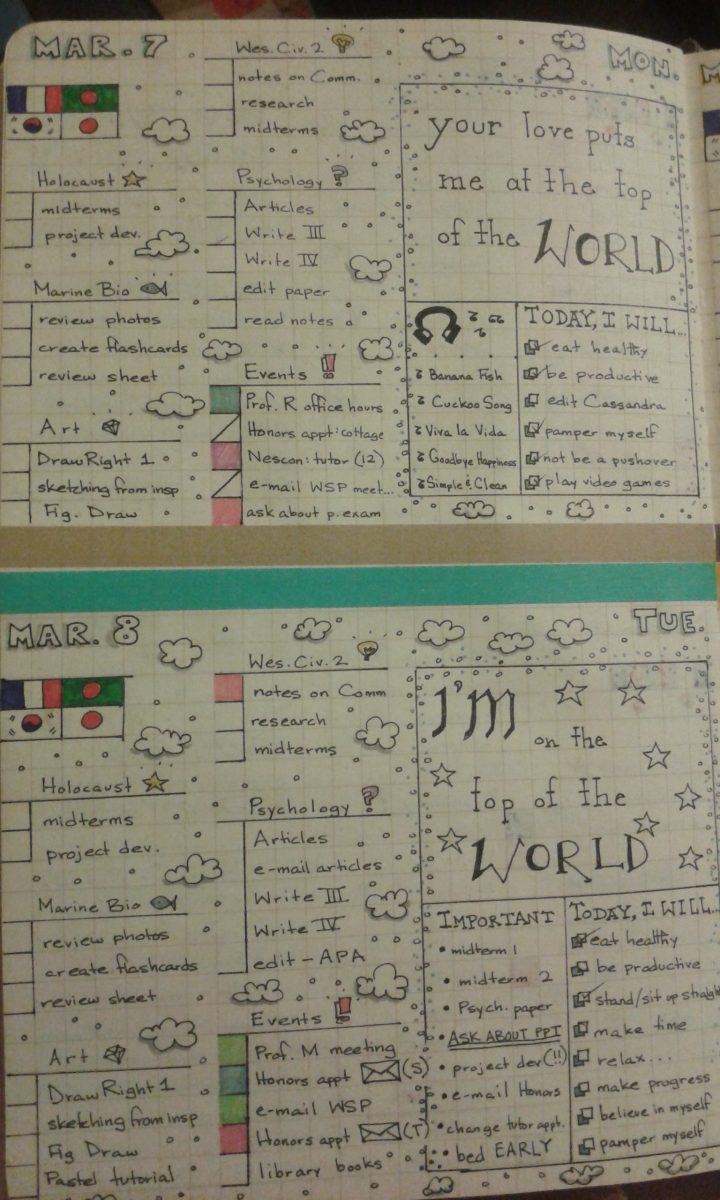 MAR. 7
MON.
Holocaust
midterms
project dev.
Marine Bio
review photos
create flashcards
review sheet
Art
Draw Right 1
sketching from insp
Fig. Draw
Wes. Civ. 2
notes on Comm.
research
midterms
Psychology ?
Articles
Write III
Write IV
edit paper
read notes
Events !!
Prof. R office hours
Honors appt: cottage
Nescon: tutor (12)
e-mail WSP meet...
ask about p. exam
your love puts
me at the top
of the WORLD
Banana Fish
Cuckoo Song
Viva la Vida
Goodbye Happiness
Simple & Clean
TODAY, I WILL...
eat healthy
be productive
edit Cassandra
pamper myself
not be a pushover
play video games
MAR. 8
TUE.
Holocaust
midterms
project dev.
Marine Bio
review photos
create flashcards
review sheet
Art
Draw Right 1
sketching from insp
Fig Draw
Pastel tutorial
Wes. Civ. 2
notes on Comm
research
midterms
Psychology ?
Articles
e-mail articles
Write III
Write IV
edit - APA
Events !!
Prof. M meeting
Honors appt (S)
e-mail WSP
Honors appt (T)
library books
I'M
on the
top of the
WORLD
IMPORTANT
• midterm 1
• midterm 2
• Psych. paper
• ASK ABOUT PPI
• project dev (!!)
• e-mail Honors
• change tutor appt.
• bed EARLY
TODAY, I WILL...
eat healthy
be productive
stand/sit up straight
make time
relax...
make progress
believe in myself
pamper myself